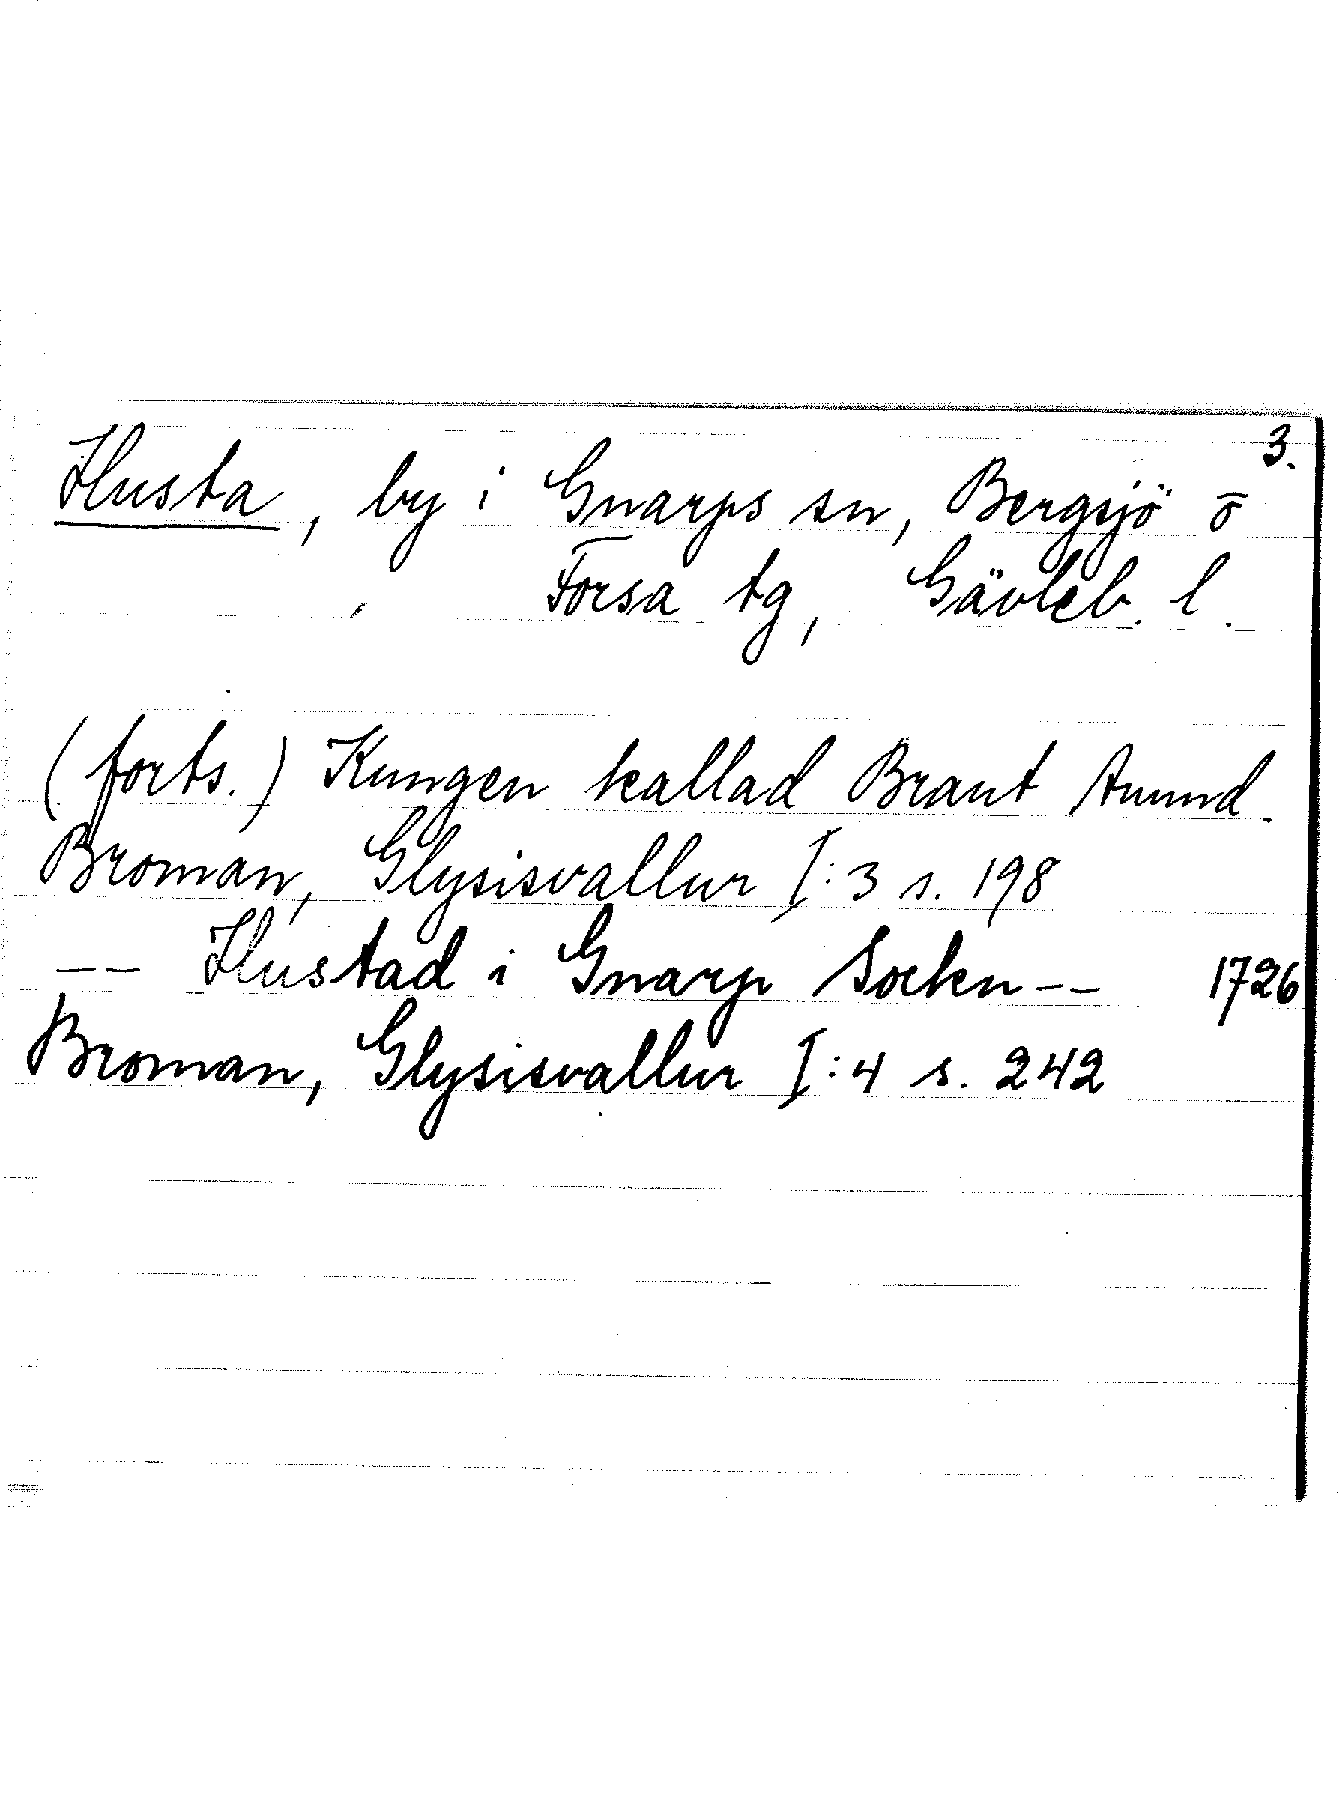 3.
Husta, by i Gnarps sn, Bergsjö o
Forsa tg, Gävleb. l.
(forts.) Kungen kallad Braut Anund.
Broman, Glysisvallur I:3 s. 198
-- Hustad i Gnarp Sockn -- 1726
Broman, Glysisvallur I:4 s. 242